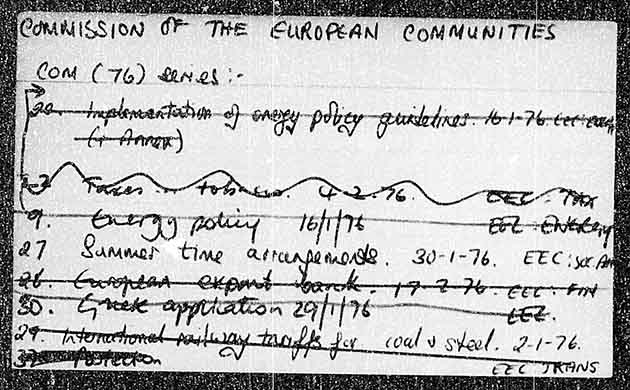 COMMISSION OF THE EUROPEAN COMMUNITIES
COM (76) series :-
20. Implementation of energy policy guidelines. 16-1-76. EEC:
(+ Annex)
Taxes tobacco. 4-2-76. EEC: TAX
9. Energy policy 16/1/76 EEC: Energy
27 Summer time arrangements. 30-1-76. EEC:
26. European export bank. 17-2-76. EEC: FIN
30. Greek application 29/1/76 EEC.
29. International railway tariffs for coal & steel. 2-1-76.
EEC TRANS